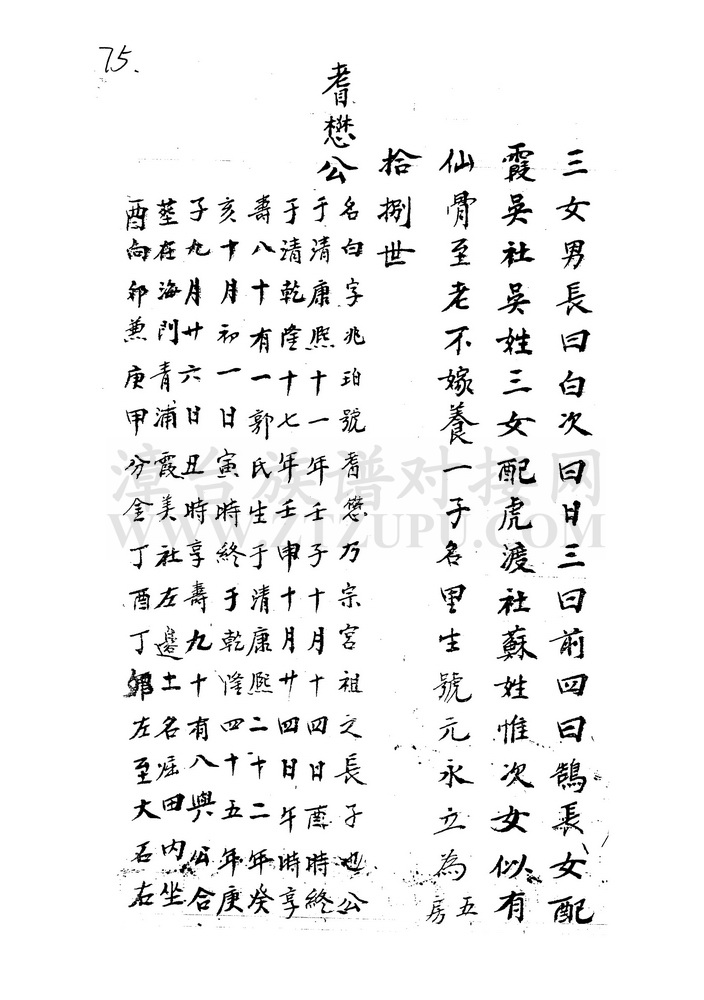 75.
三女男長曰白次曰日三曰前四曰鵠長女配
霞吳社吳姓三女配虎渡社蘇姓惟次女似有
仙骨至老不嫁養一子名里生號元永立為五房
拾捌世
耆懋公
名白字兆珀號耆懋乃宗宮祖之長子也公
于清康熙十一年壬子十月十四日酉時終
于清乾隆十七年壬申十月廿四日午時享
壽八十有一郭氏生于清康熙二十二年癸
亥十月初一日寅時終于乾隆四十五年庚
子九月廿六日丑時享壽九十有八與公合
塟在海門青浦霞美社左邊土名堀田內坐
酉向卯兼庚甲分金丁酉丁卯左至大石右
漳台族谱对接网
WWW.ZTZUPU.COM